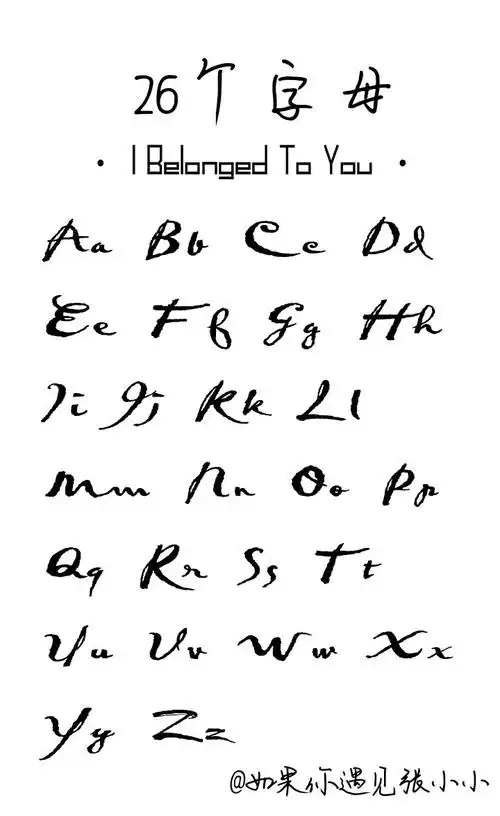 26个字母
· I Belonged To You ·
Aa Bb Cc Dd
Ee Ff Gg Hh
Ii Jj Kk Ll
Mm Nn Oo Pp
Qq Rr Ss Tt
Uu Vv Ww Xx
Yy Zz
@如果你遇见张小小